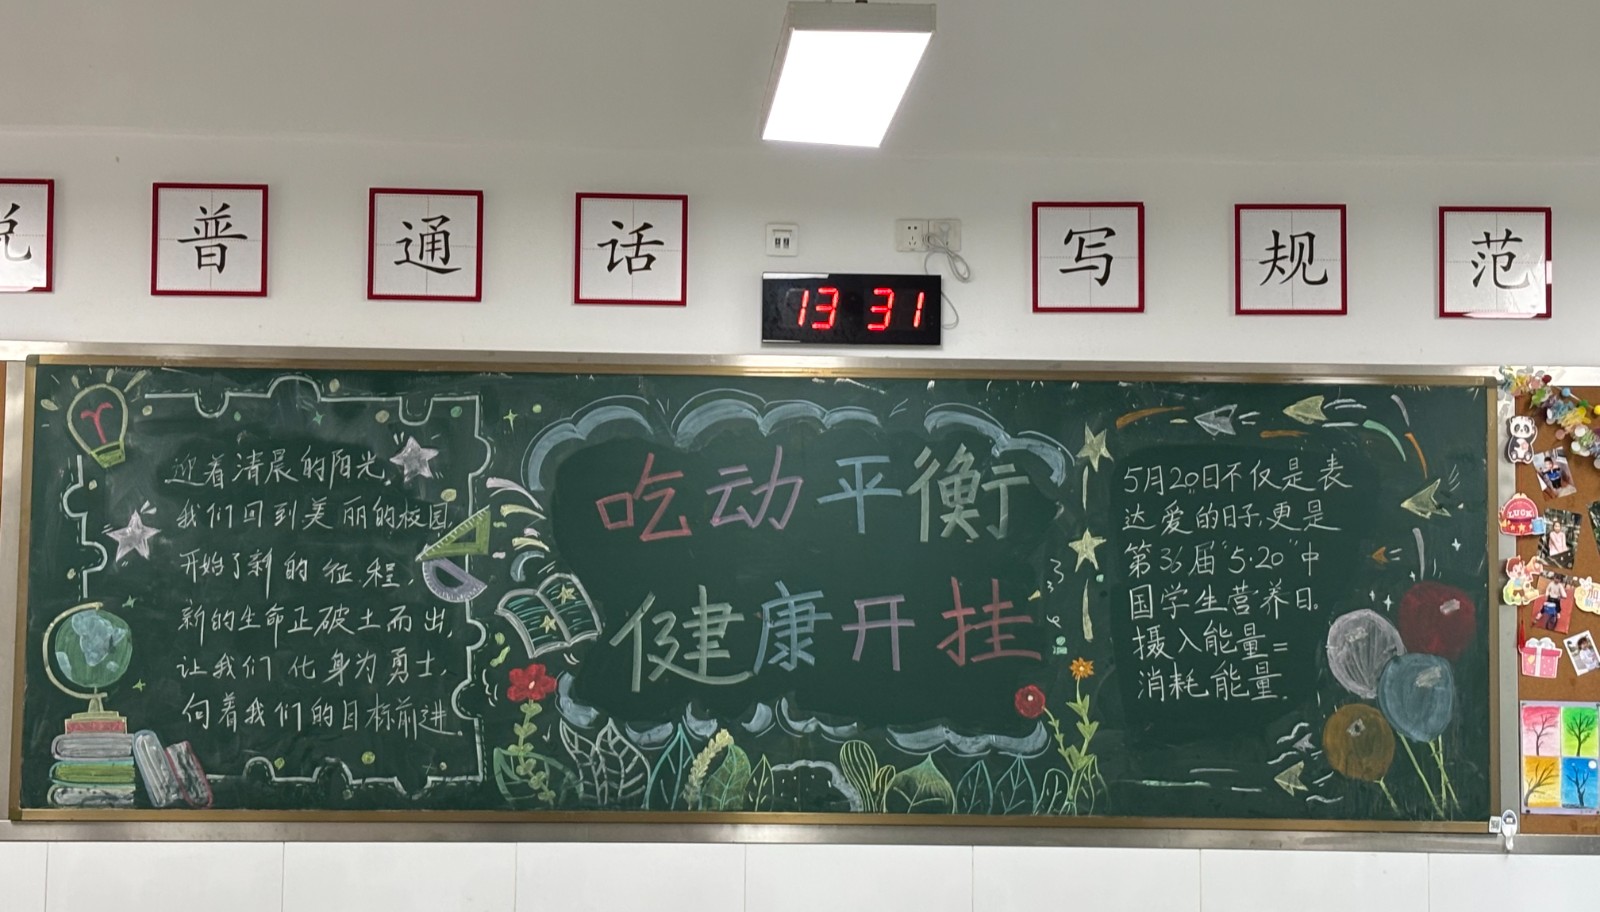 说 普 通 话 写 规 范
13 31
迎着清晨的阳光,
我们回到美丽的校园,
开始了新的征程,
新的生命正破土而出,
让我们化身为勇士,
向着我们的目标前进。
吃动平衡
健康开挂
5月20日不仅是表
达爱的日子,更是
第36届“5·20”中
国学生营养日。
摄入能量=
消耗能量。
LUCK